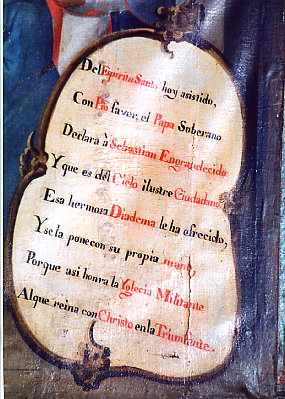 Del Espiritu Santo hoy asistido,
Con Pio favor, el Papa Soberano
Declara à Sebastian Engrandecido
Y que es del Cielo ilustre Ciudadano,
Esa hermosa Diadema le ha ofrecido,
Y se la pone con su propia mano,
Porque asi honra la Yglecia Militante
Al que reina con Christo en la Triumfante.